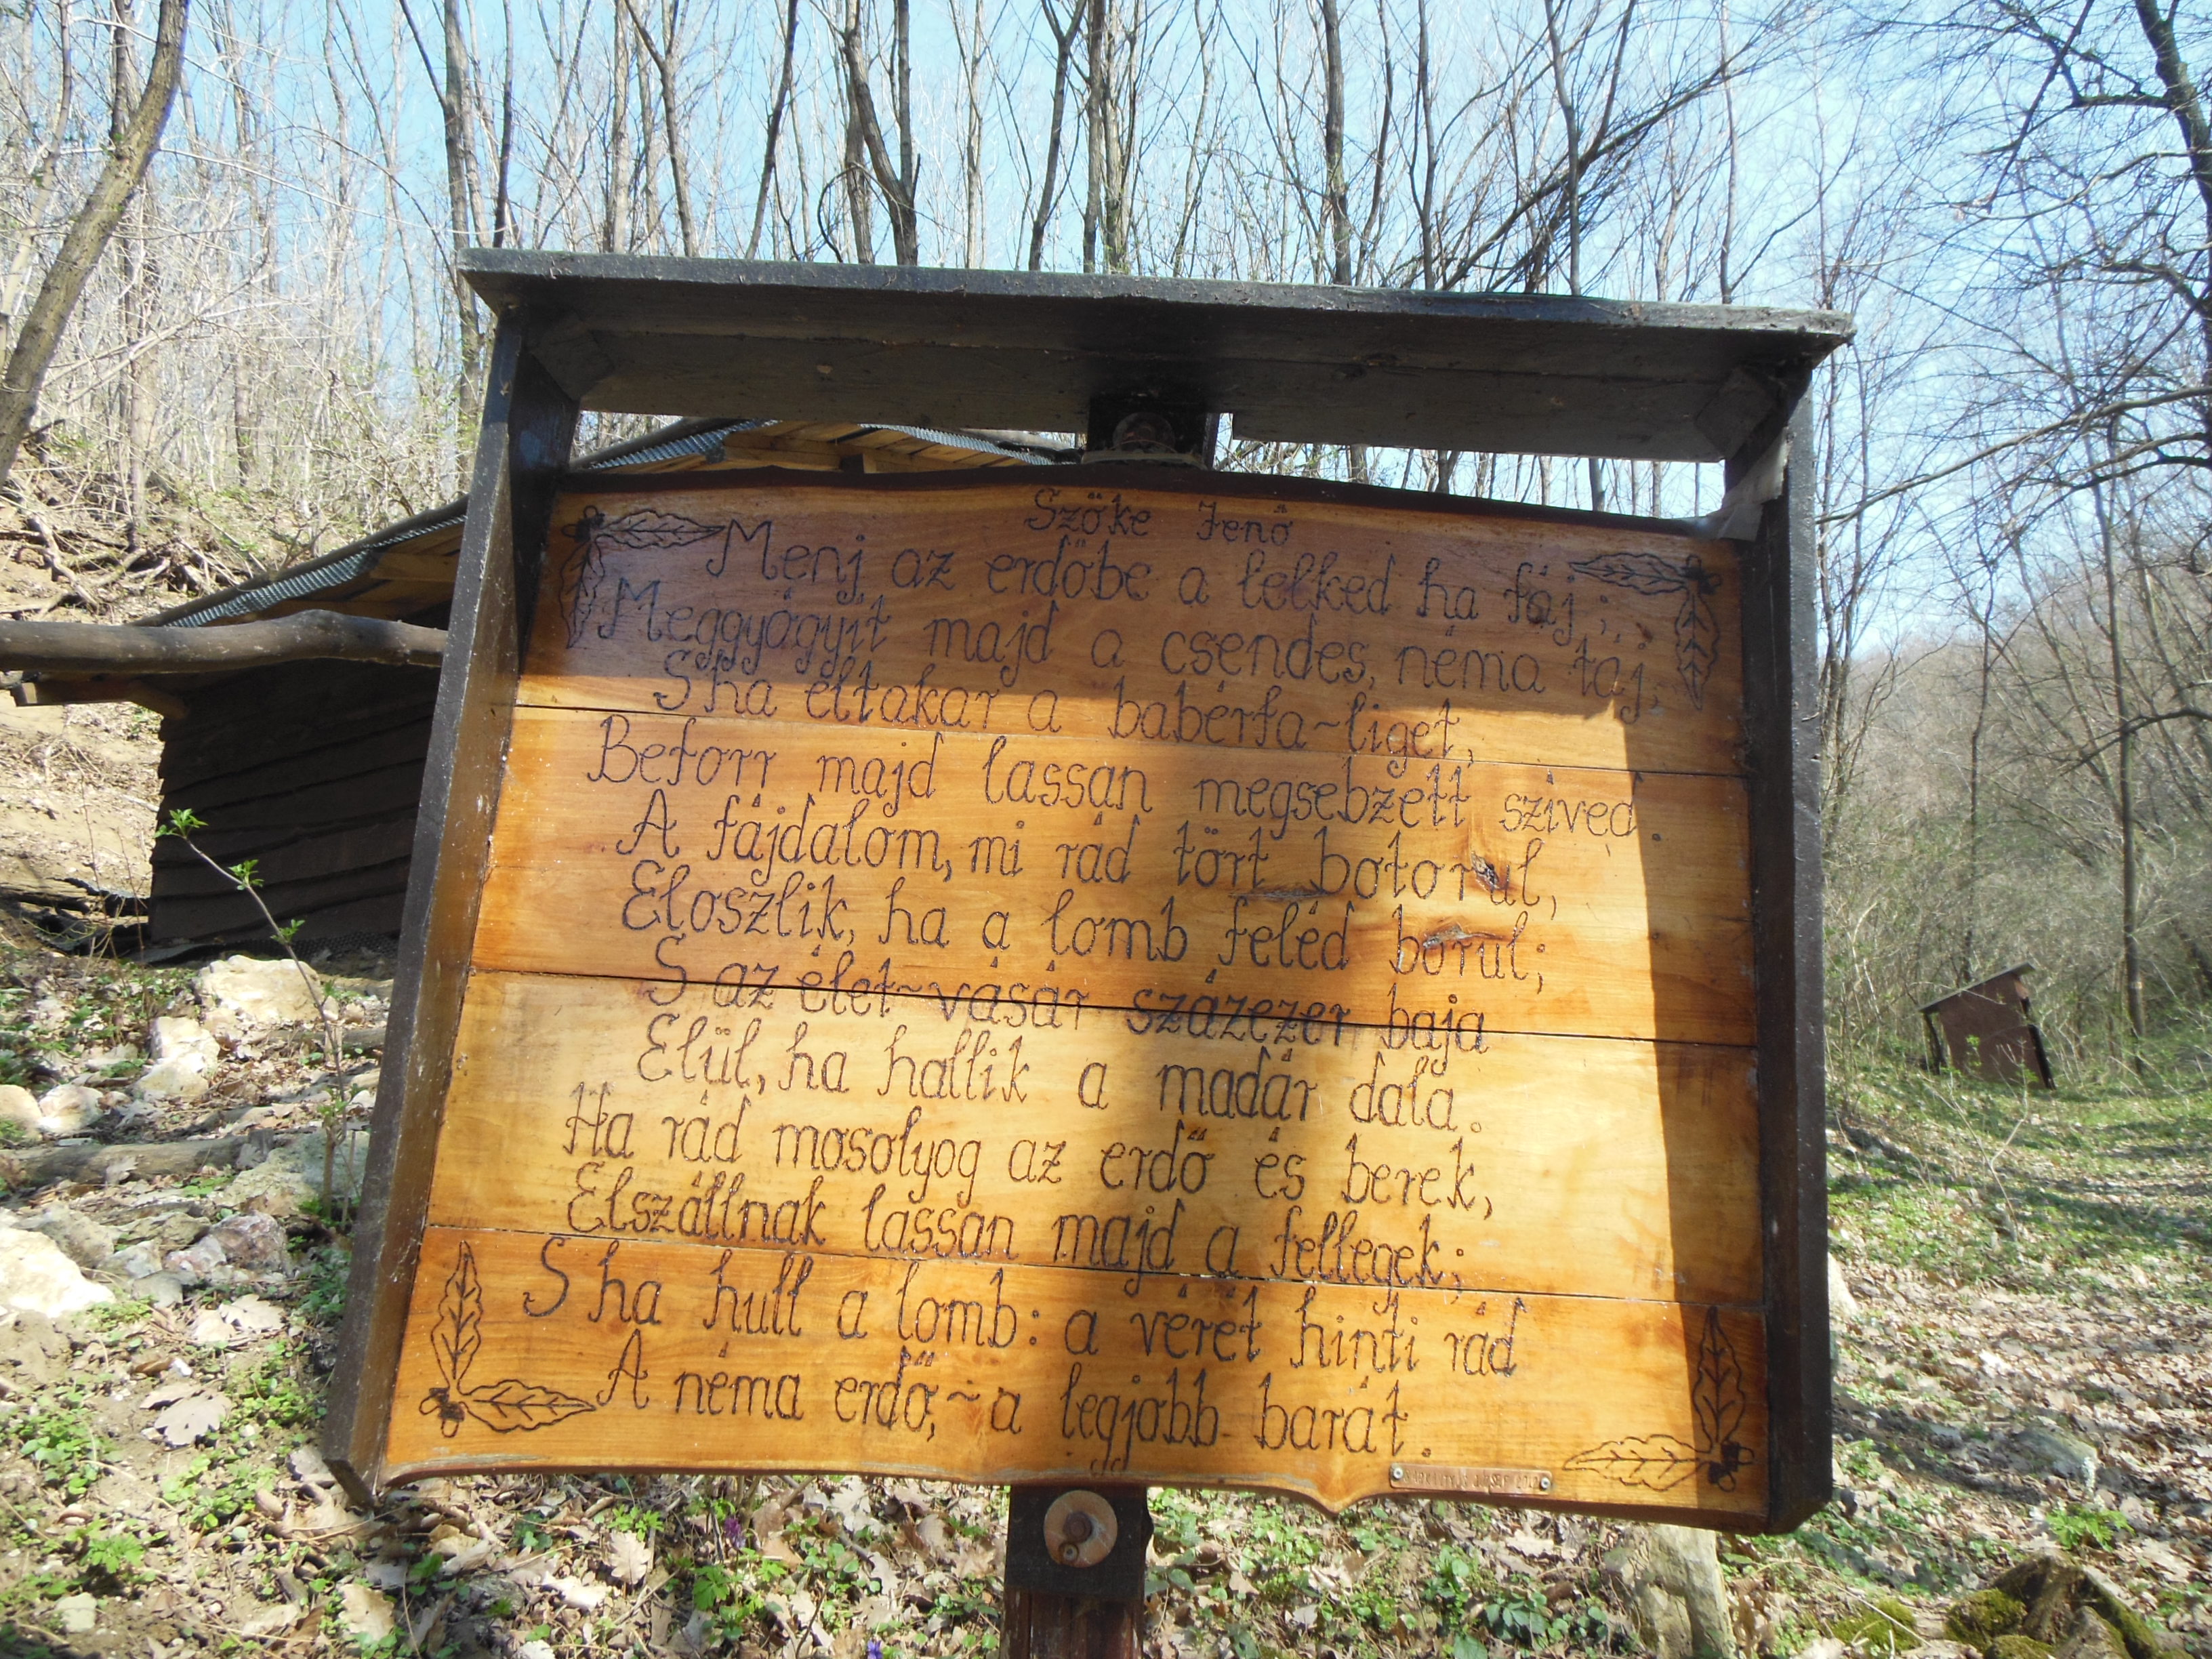 Szőke Jenő
Menj az erdőbe a lelked ha fáj;
Meggyógyít majd a csendes, néma táj,
S ha eltakar a babérfa-liget,
Beforr majd lassan megsebzett szived.
A fájdalom, mi rád tört botorul,
Eloszlik, ha a lomb feléd borul;
S az élet-vásár százezer baja
Elül, ha hallik a madár dala.
Ha rád mosolyog az erdő és berek,
Elszállnak lassan majd a fellegek;
S ha hull a lomb: a vérét hinti rád
A néma erdő,-a legjobb barát.